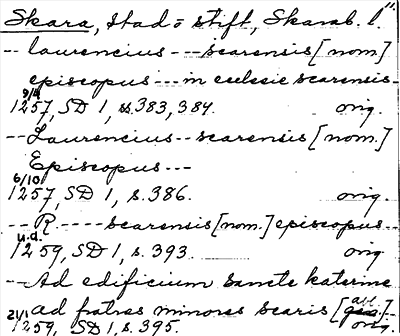 Skara, stad o stift, Skarab. l."
-- laurencius --- scarensis [nom]
episcopus --- in ecclesie scarensis -
9/4
1257, SD 1, s. 383, 384. orig.
-- Laurencius -- scarensis [nom.]
Episcopus ---
6/10
1257, SD 1, s. 386. orig.
-- R ---- scarensis [nom.] episcopus --
u.d.
1259, SD 1, s. 393. orig
-- Ad edificium sancte katerine
ad fratres minores scaris [abl.
21/1
1259, SD 1, s. 395. orig.